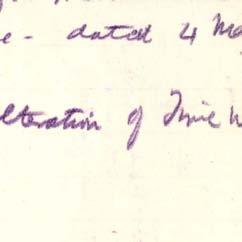 e - dated 4 Ma
lteration of Time